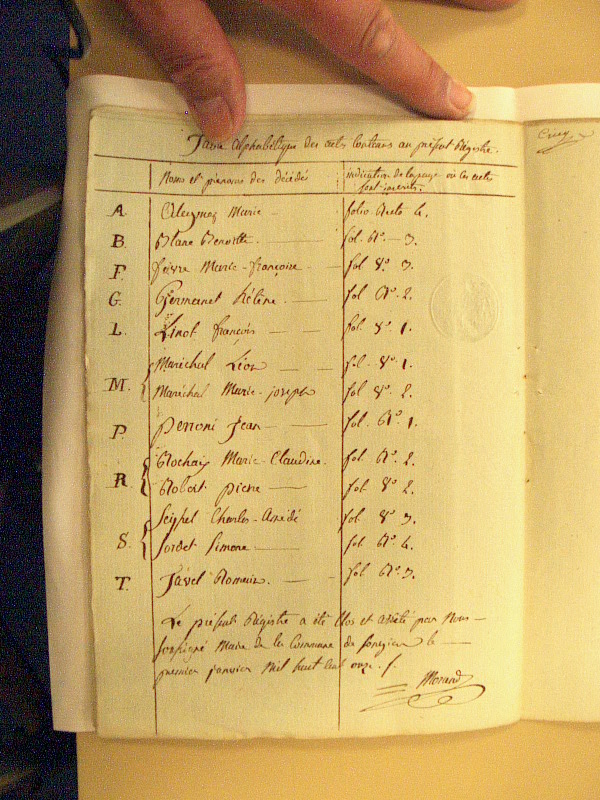 Table alphabétique des actes contenus au présent Régistre.
Noms et prénoms des décédé
indication de la page où les actes
sont inscrits.
A. Marie - folio Recto 4.
B. Blanc Benoitte. fol. Ro. - 3.
F. fèvre Marie-françoise - fol. Vo. 3.
G. Germanet hélène. fol Ro. 2.
L. Linot françois fol. Vo. 1.
Maréchal fol. Vo. 1.
M. Maréchal Marie-joseph fol Vo. 2.
P. perroni Jean - fol. Ro. 1.
Rochaix Marie-Claudine. fol. Ro. 2.
R. Robert pierre fol. Vo. 2.
Seissel Charles-Amédé fol. Vo. 3
S. Sordet Simone fol. Ro. 4.
T. Javel Romain. fol Ro. 3.
Le présent Régistre a été Clos et arrêté par Nous
soussigné Maire de la Commune de le
premier janvier Mil huit Cent onze.
Morand